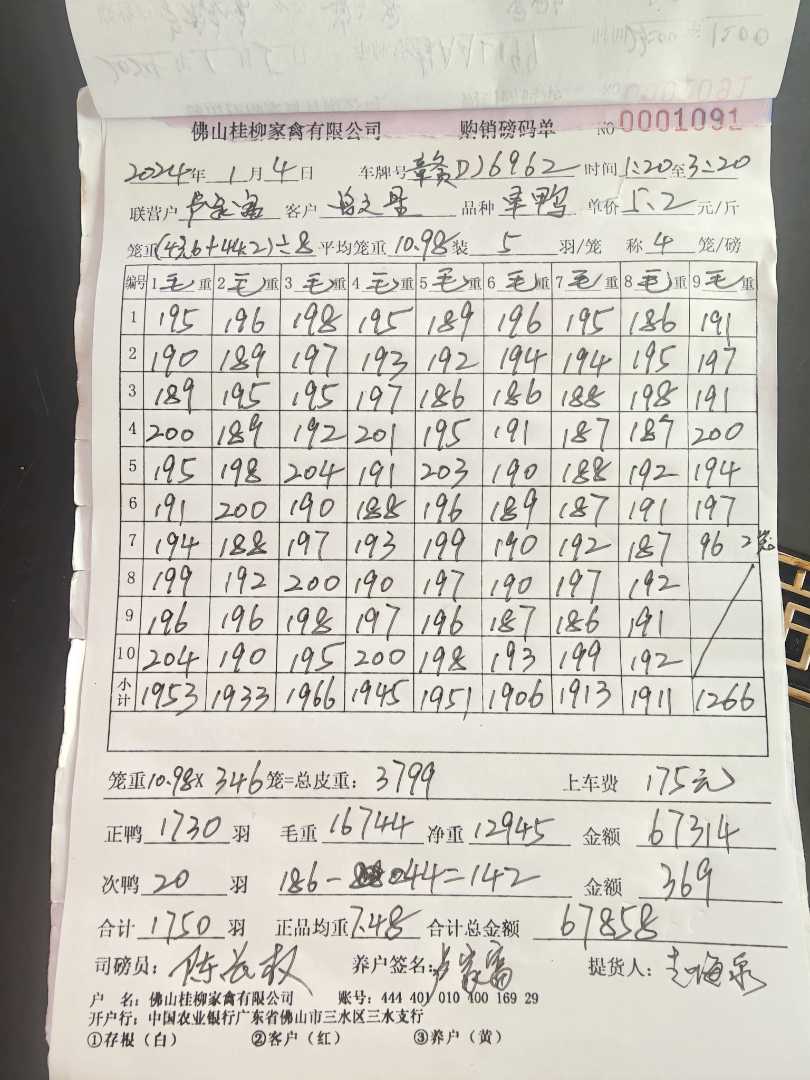 佛山桂柳家禽有限公司 购销磅码单 NO 0001091
2024年 1月 4日 车牌号 赣DJ6962 时间 1:20至3:20
联营户 卢家富 客户 品种 单鸭 单价 5.2 元/斤
笼重(43.6+44.2)÷8 平均笼重 10.98 装 5 羽/笼 称 4 笼/磅
编号 1毛重 2毛重 3毛重 4毛重 5毛重 6毛重 7毛重 8毛重 9毛重
1 195 196 198 195 189 196 195 186 191
2 190 189 197 193 192 194 194 195 197
3 189 195 195 197 186 186 188 198 191
4 200 189 192 201 195 191 187 187 200
5 195 198 204 191 203 190 188 192 194
6 191 200 190 188 196 189 187 191 197
7 194 188 197 193 199 190 192 187 96 2笼
8 199 192 200 190 197 190 197 192
9 196 196 198 197 196 187 186 191
10 204 190 195 200 198 193 199 192
小计 1953 1933 1966 1945 1951 1906 1913 1911 1266
笼重10.98×346笼=总皮重：3799 上车费 175元
正鸭 1730 羽 毛重 16744 净重 12945 金额 67314
次鸭 20 羽 186-44=142 金额 369
合计 1750 羽 正品均重 7.48 合计总金额 67858
司磅员： 养户签名：卢家富 提货人：
户 名：佛山桂柳家禽有限公司 账号：444 401 010 400 169 29
开户行：中国农业银行广东省佛山市三水区三水支行
①存根（白） ②客户（红） ③养户（黄）